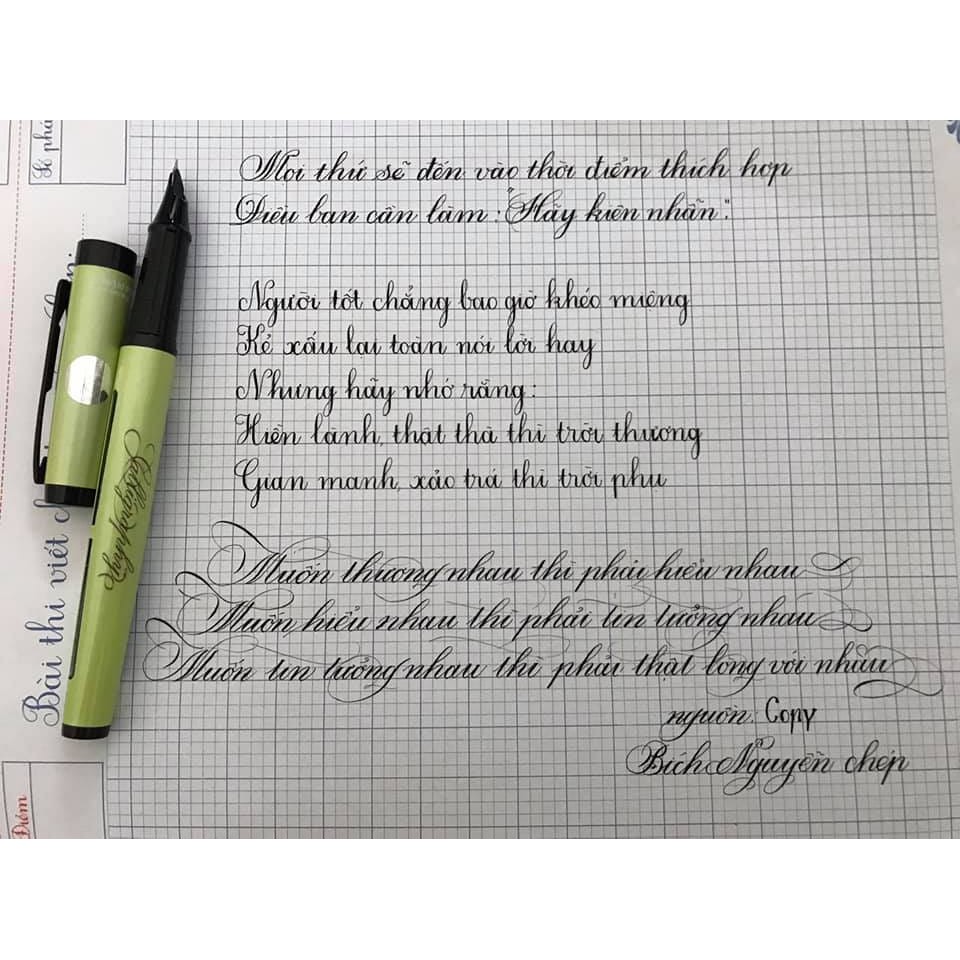 Mọi thứ sẽ đến vào thời điểm thích hợp
Điều bạn cần làm: "Hãy kiên nhẫn".
Người tốt chẳng bao giờ khéo miệng
Kẻ xấu lại toàn nói lời hay
Nhưng hãy nhớ rằng:
Hiền lành, thật thà thì trời thương
Gian manh, xảo trá thì trời phụ
Muốn thương nhau thì phải hiểu nhau
Muốn hiểu nhau thì phải tin tưởng nhau
Muốn tin tưởng nhau thì phải thật lòng với nhau
nguồn: Copy
Bích Nguyễn chép
Calligraphy
Bài thi viết ch
Số phá
Điểm